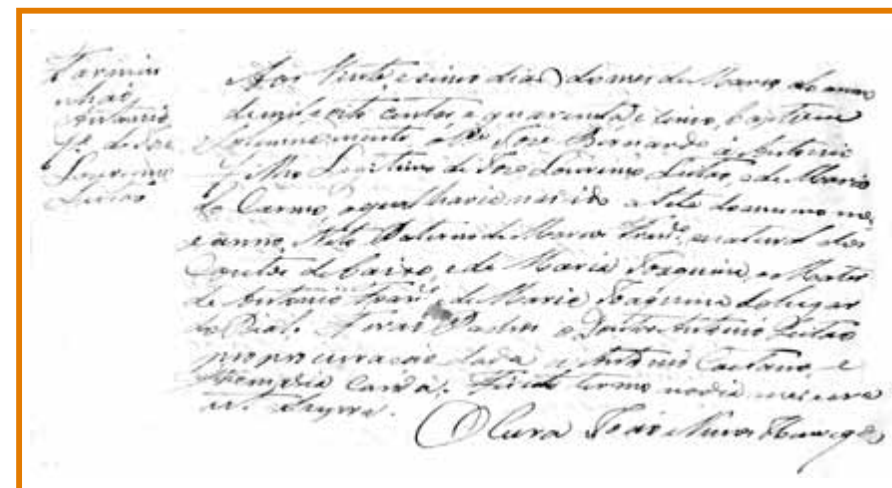 Antonio
de Jose
Lourenço
Leitão
Aos Vinte, e cinco dias do mes de Março do anno
de mil e oito centos e quarenta e cinco, baptizou
Solemnemente o Pe Jose Bernardo à Antonio
Filho Legitimo de Jose Lourenço Leitão, e de Maria
do Carmo, o qual havia nascido a sete do mesmo mes
e anno, Neto Paterno de Marcos natural dos
Coutos de baixo, e de Maria Joaquina, e Mater
de Antonio e de Maria Joaquina do lugar
do Pial. Forão Padros o Doutor Antonio Leitão
por procuração dada a Antonio Caetano, e
Fiz este termo no dia mes era
ut supra.
O Cura João Nunes